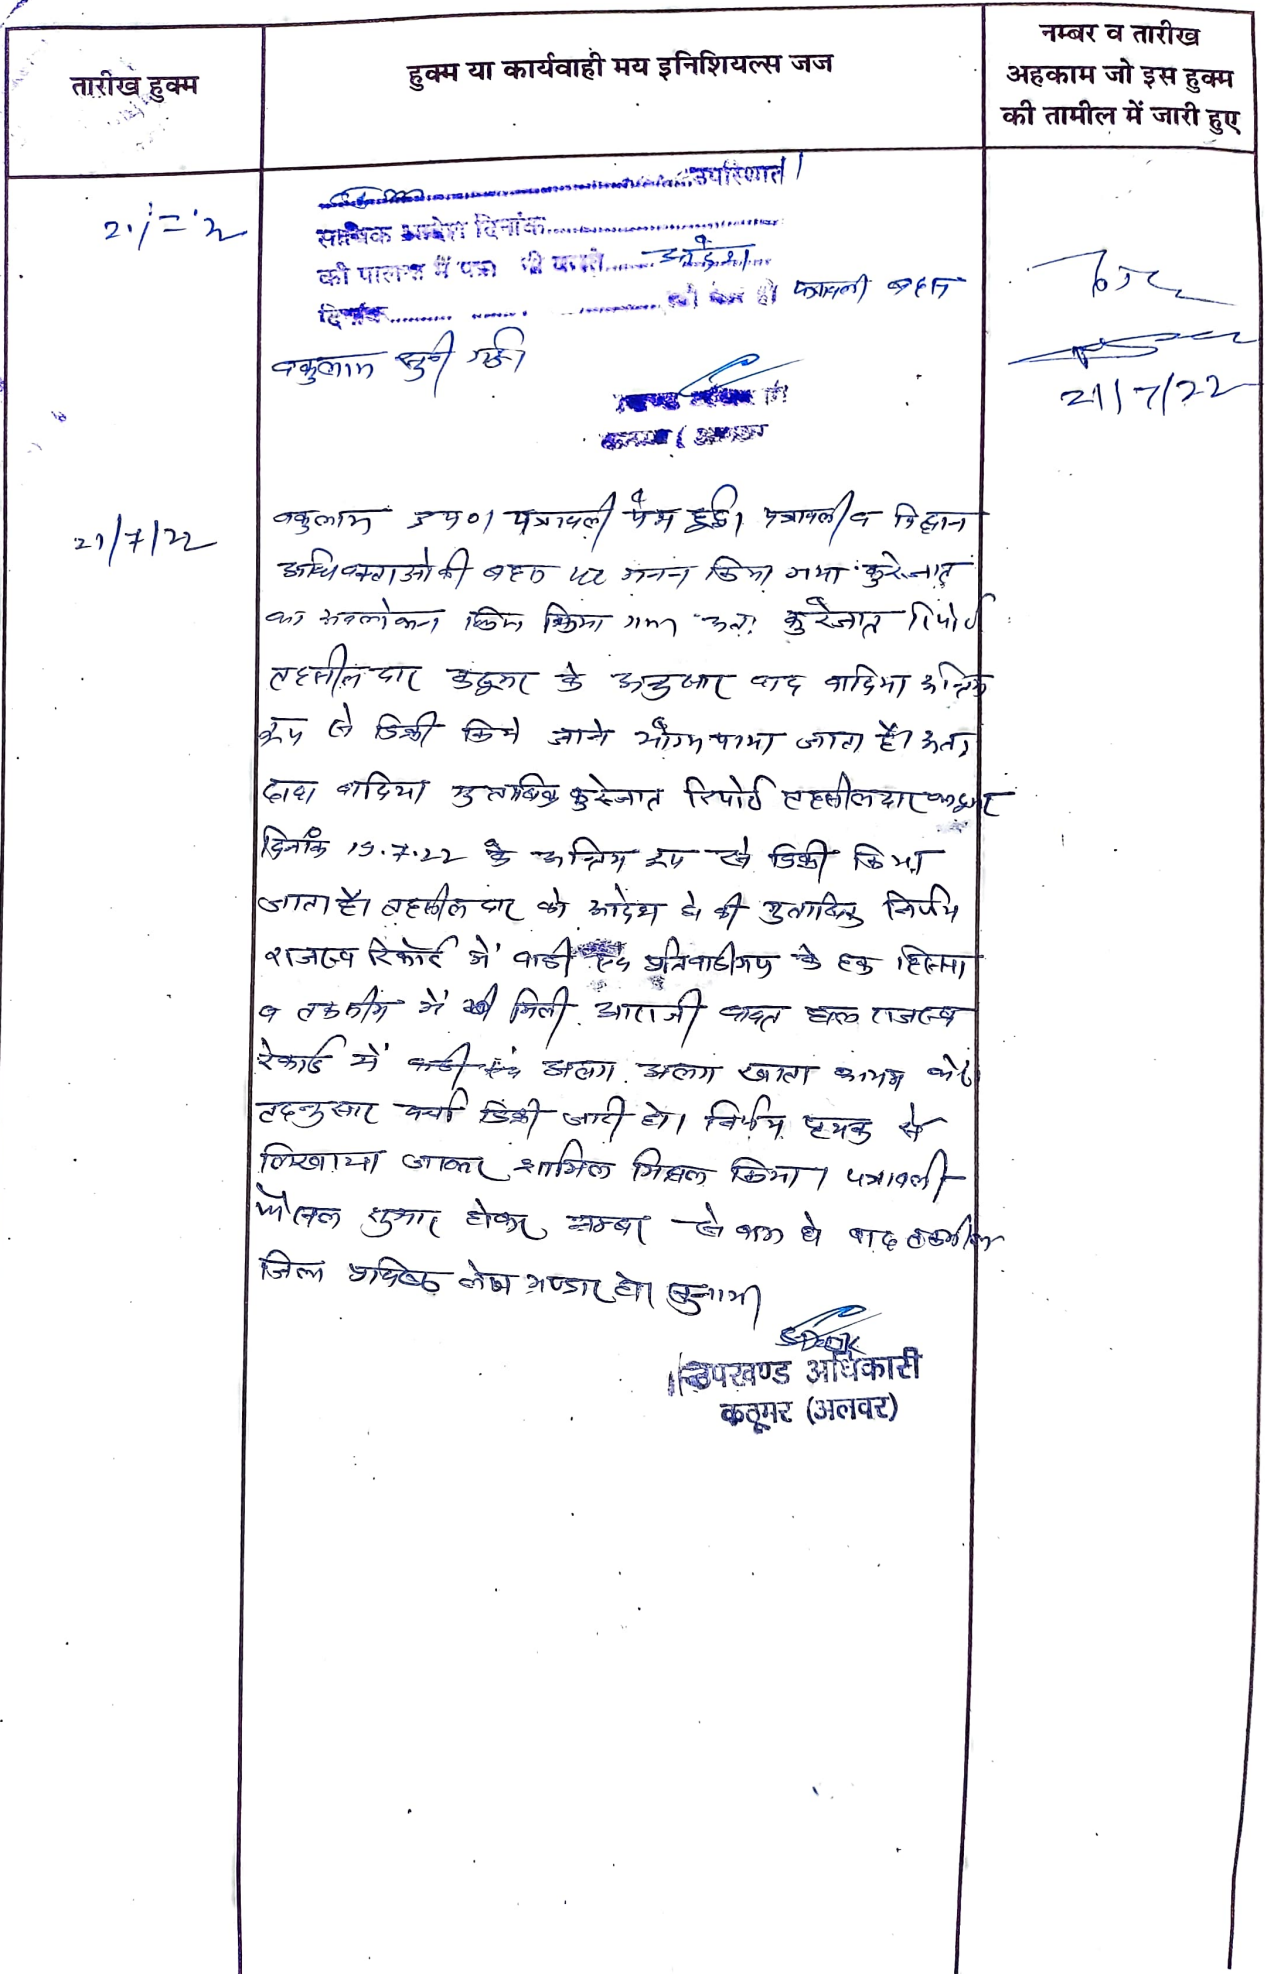 तारीख हुक्म
हुक्म या कार्यवाही मय इनिशियल्स जज
नम्बर व तारीख
अहकाम जो इस हुक्म
की तामील में जारी हुए
उपस्थित।
साबिक आदेश दिनांक
की पालना में
दिनांक पत्रावली बहस
वकुलाय सुनी गई।
21/7/22
21/7/22
वकुलाय उप०। पत्रावली पेश हुई। पत्रावली व विद्वान
अधिवक्ताओ की बहस पर मनन किया गया कुरेजात
का अवलोकन किया गया अतः कुरेजात रिपोर्ट
तहसीलदार कठूमर के अनुसार वाद वादिया अन्तिम
रूप से डिक्री किये जाने योग्य पाया जाता है। अतः
वादिया मुताबिक कुरेजात रिपोर्ट तहसीलदार कठूमर
दिनांक 19.7.22 के अन्तिम रूप से डिक्री किया
जाता है। तहसीलदार को आदेश हो की मुताबिक निर्णय
राजस्व रिकॉर्ड में वादी एवं प्रतिवादीगण के हक हिस्सा
व तकसीम में मिली आराजी राजस्व
रेकार्ड में अलग अलग खाता कायम करे।
तदनुसार पर्चा डिक्री जारी हो। निर्णय पृथक से
लिखाया जाकर शामिल मिसल किया। पत्रावली
फैसल शुमार होकर नम्बर से कम हो बाद तकमील
जिला लेख भण्डार हो। सुनाया
उपखण्ड अधिकारी
कठूमर (अलवर)